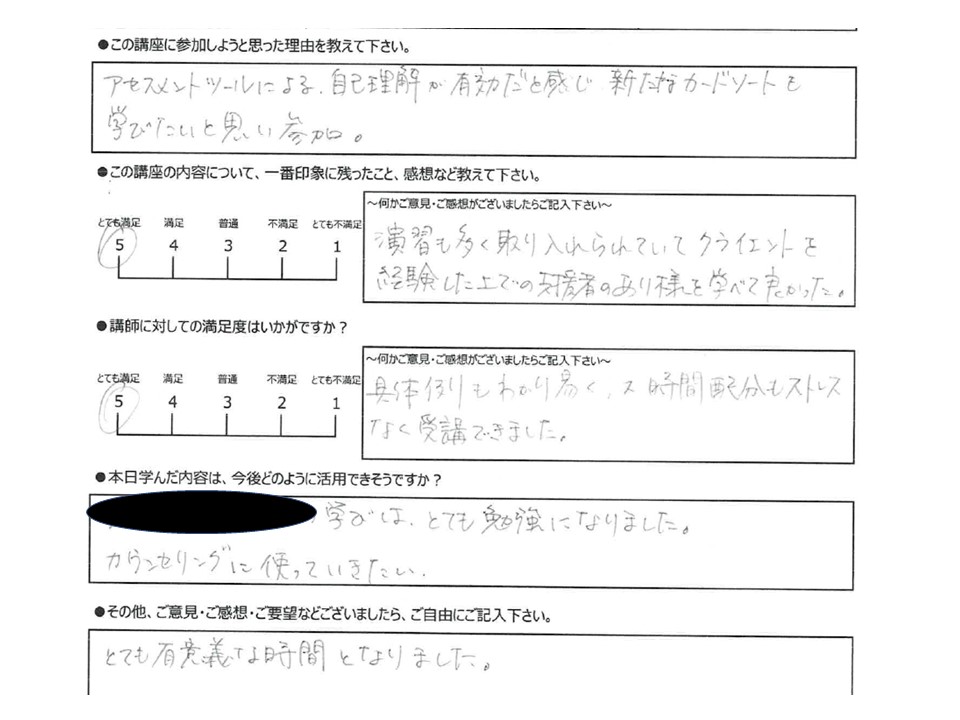 ●この講座に参加しようと思った理由を教えて下さい。
アセスメントツールによる、自己理解が有効だと感じ 新たなカードソートを
学びたいと思い参加。
●この講座の内容について、一番印象に残ったこと、感想など教えて下さい。
とても満足 満足 普通 不満足 とても不満足
5 4 3 2 1
～何かご意見・ご感想がございましたらご記入下さい～
演習も多く取り入れられていてクライエントを
経験した上での支援者のあり様を学べて良かった。
●講師に対しての満足度はいかがですか？
とても満足 満足 普通 不満足 とても不満足
5 4 3 2 1
～何かご意見・ご感想がございましたらご記入下さい～
具体例りもわかり易く、又時間配分もストレス
なく受講できました。
●本日学んだ内容は、今後どのように活用できそうですか？
学びは、とても勉強になりました。
カウンセリングに使っていきたい.
●その他、ご意見・ご感想・ご要望などございましたら、ご自由にご記入下さい。
とても有意義な時間となりました。